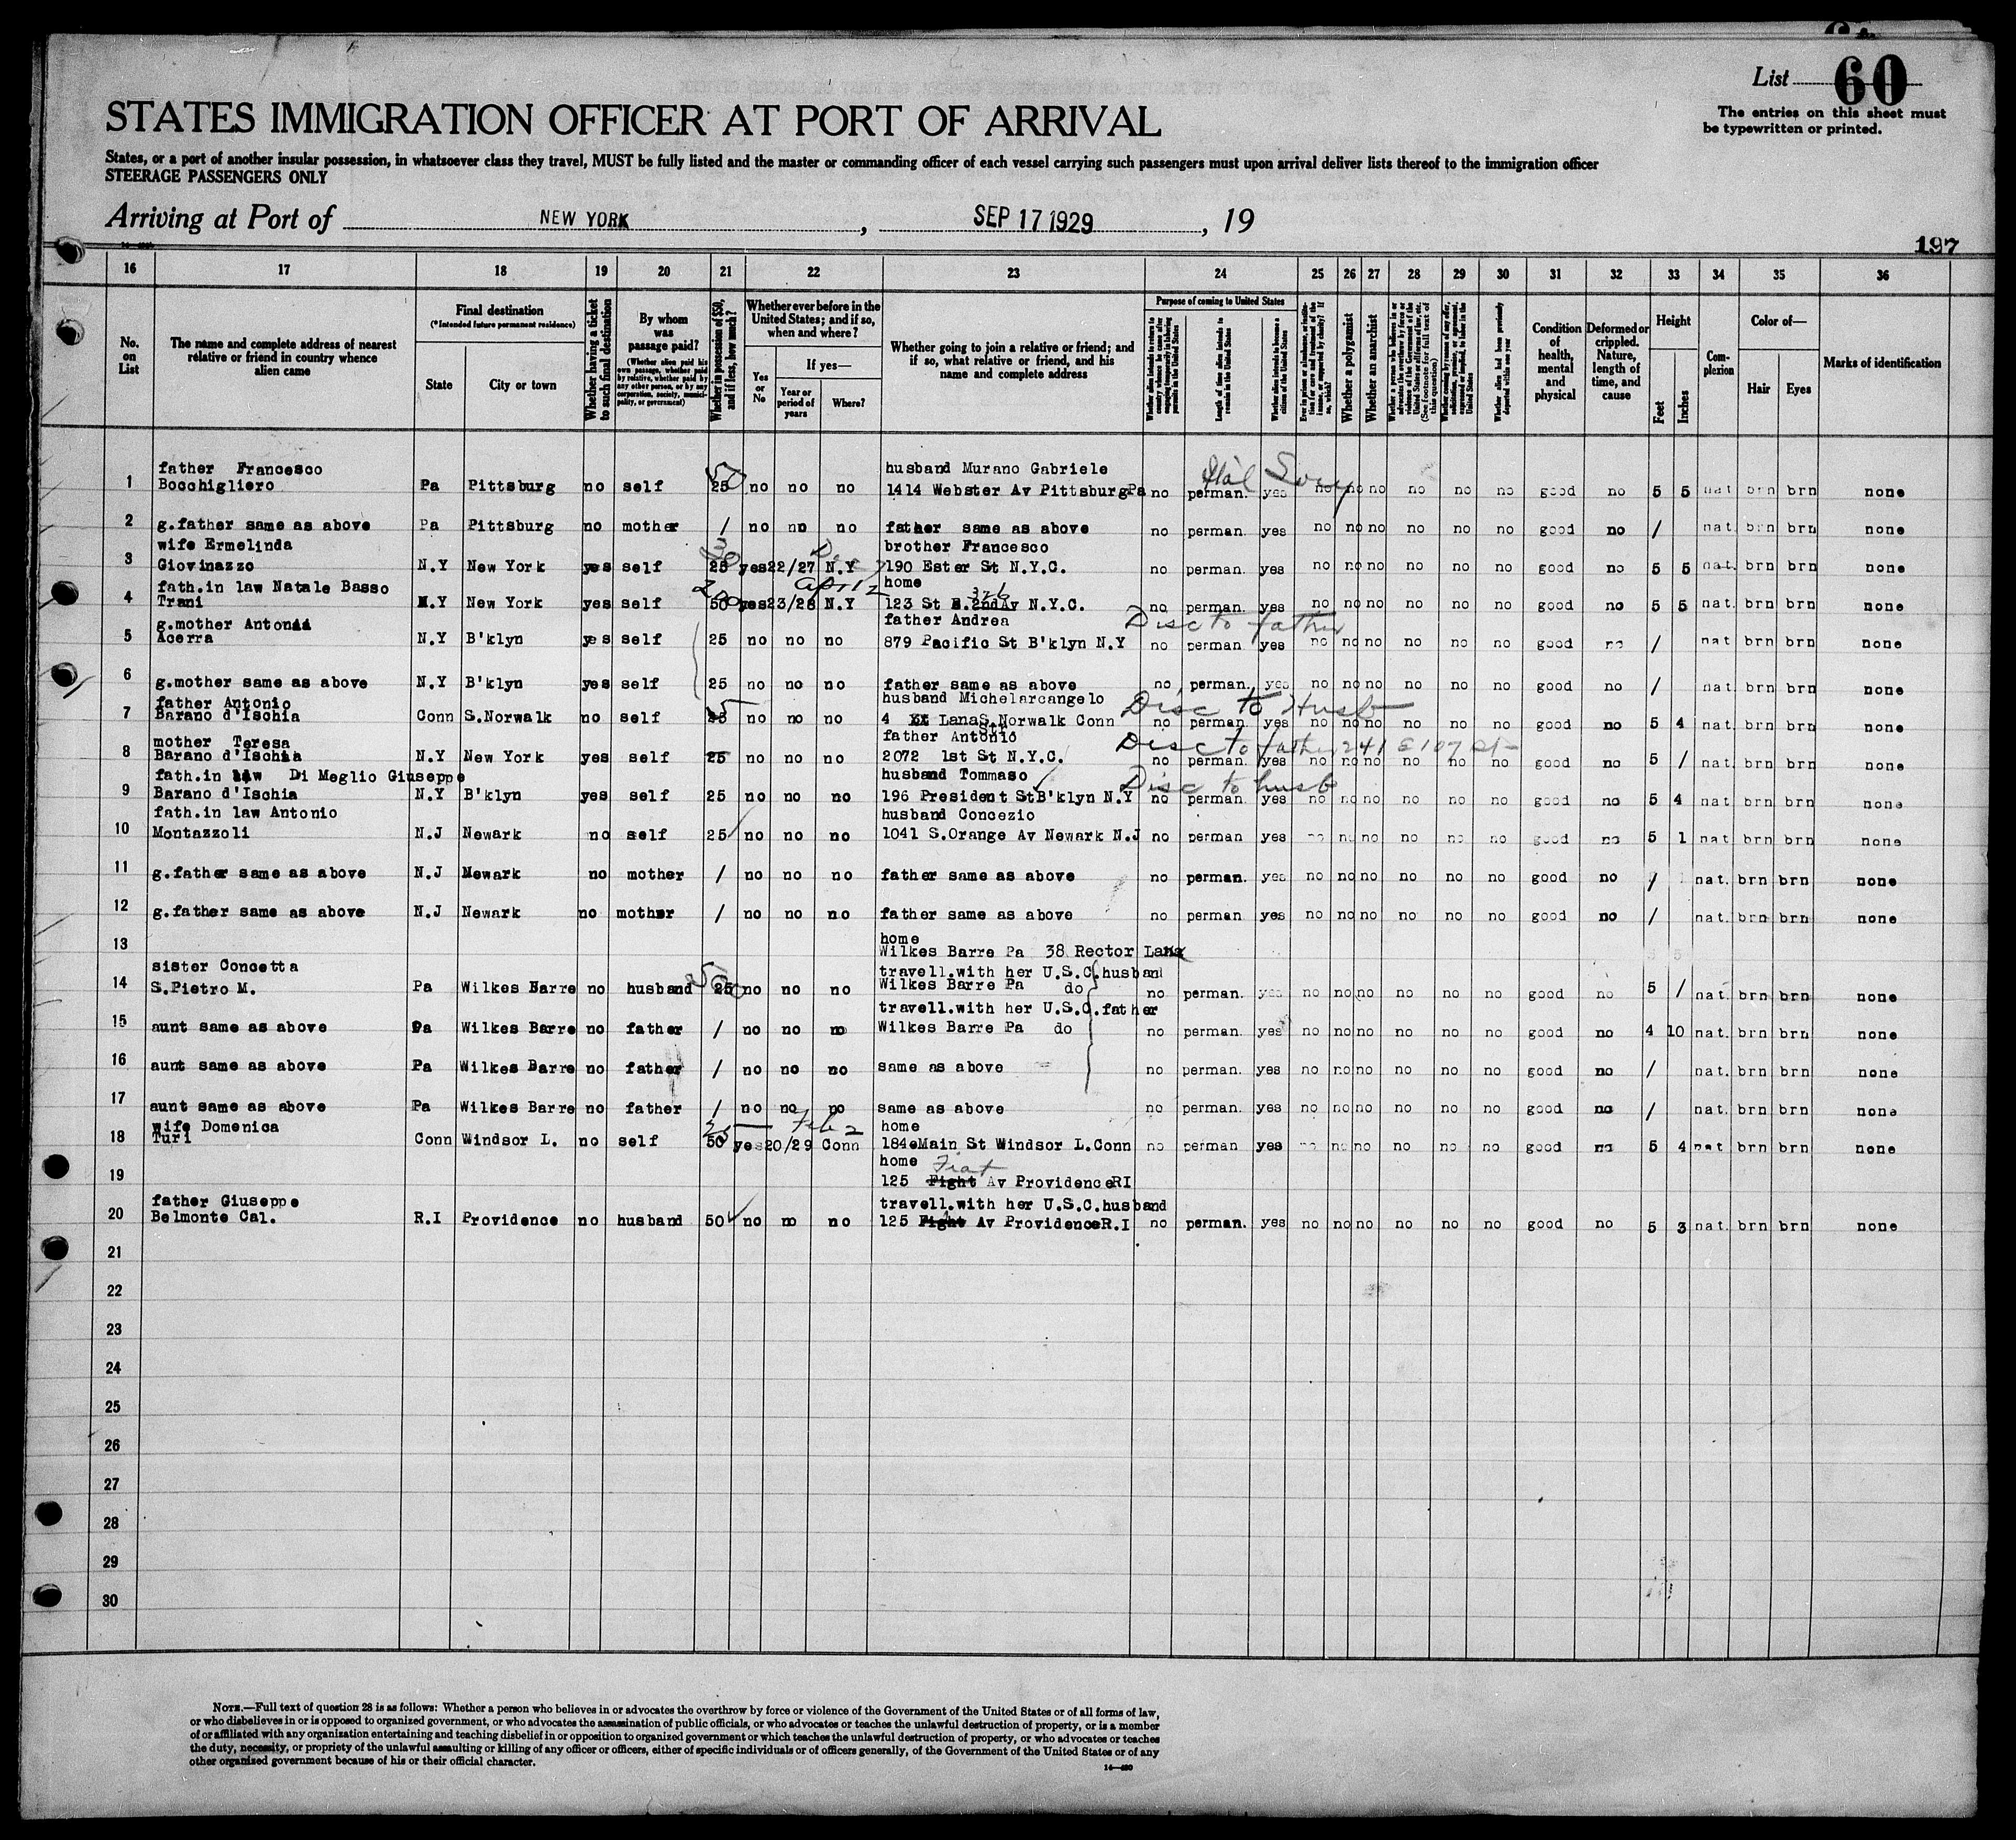 List 60
The entries on this sheet must
be typewritten or printed.
STATES IMMIGRATION OFFICER AT PORT OF ARRIVAL
States, or a port of another insular possession, in whatsoever class they travel, MUST be fully listed and the master or commanding officer of each vessel carrying such passengers must upon arrival deliver lists thereof to the immigration officer
STEERAGE PASSENGERS ONLY
Arriving at Port of NEW YORK, SEP 17 1929, 19
197
16 17 18 19 20 21 22 23 24 25 26 27 28 29 30 31 32 33 34 35 36
No. on List
The name and complete address of nearest relative or friend in country whence alien came
Final destination
(*Intended future permanent residence)
State
City or town
Whether having a ticket to such final destination
By whom was passage paid?
(Whether alien paid his own passage, whether paid by relative, whether paid by any other person, or by any corporation, society, municipality, or government)
Whether in possession of $50, and if less, how much?
Whether ever before in the United States; and if so, when and where?
Yes or No
If yes—
Year or period of years
Where?
Whether going to join a relative or friend; and if so, what relative or friend, and his name and complete address
Purpose of coming to United States
Length of time alien intends to remain in the United States
Whether alien intends to become a citizen of the United States
Whether a polygamist
Whether an anarchist
Condition of health, mental and physical
Deformed or crippled. Nature, length of time, and cause
Height
Feet
Inches
Complexion
Color of—
Hair
Eyes
Marks of identification
father Francesco husband Murano Gabriele
1 Bocchigliero Pa Pittsburg no self 25 no no no 1414 Webster Av Pittsburg Pa no perman. yes no no no no no no good no 5 5 nat brn brn none
2 g.father same as above Pa Pittsburg no mother / no no no father same as above no perman. yes no no no no no no good no / nat. brn brn none
wife Ermelinda brother Francesco
3 Giovinazzo N.Y New York yes self 25 yes 22/27 N.Y 190 Ester St N.Y.C. no perman. yes no no no no no no good no 5 5 nat. brn brn none
fath.in law Natale Basso April 2 home
4 Trani N.Y New York yes self 50 yes 23/28 N.Y 123 St E.2nd Av N.Y.C. 326 no perman. yes no no no no no no good no 5 5 nat. brn brn none
g.mother Antonia father Andrea Disc to father
5 Acerra N.Y B'klyn yes self 25 no no no 879 Pacific St B'klyn N.Y no perman yes no no no no no no good no / nat brn brn none
6 g.mother same as above N.Y B'klyn yes self 25 no no no father same as above no perman. yes no no no no no no good no / nat. brn brn none
father Antonio husband Michelarcangelo Disc to Husb
7 Barano d'Ischia Conn S.Norwalk no self 25 no no no 4 Lana St. S.Norwalk Conn no perman. yes no no no no no no good no 5 4 nat. brn brn none
mother Teresa father Antonio Disc to father 241 E 107 St
8 Barano d'Ischia N.Y New York yes self 25 no no no 2072 1st St N.Y.C. no perman. yes no no no no no no good no 5 / nat. brn brn none
fath.in law Di Meglio Giuseppe husband Tommaso Disc to husb
9 Barano d'Ischia N.Y B'klyn yes self 25 no no no 196 President St B'klyn N.Y no perman. yes no no no no no no good no 5 4 nat. brn brn none
fath.in law Antonio husband Concezio
10 Montazzoli N.J Newark no self 25 no no no 1041 S.Orange Av Newark N.J no perman yes no no no no no no good no 5 1 nat brn brn none
11 g.father same as above N.J Newark no mother / no no no father same as above no perman. yes no no no no no no good no / nat. brn brn none
12 g.father same as above N.J Newark no mother / no no no father same as above no perman yes no no no no no no good no / nat. brn brn none
home
13 Wilkes Barre Pa 38 Rector Lana
sister Concetta travell.with her U.S.C.husband
14 S.Pietro M. Pa Wilkes Barre no husband 25 no no no Wilkes Barre Pa do no perman. yes no no no no no no good no 5 / nat. brn brn none
travell.with her U.S.C.father
15 aunt same as above Pa Wilkes Barre no father / no no no Wilkes Barre Pa do no perman. yes no no no no no no good no 4 10 nat. brn brn none
16 aunt same as above Pa Wilkes Barre no father / no no no same as above no perman. yes no no no no no no good no / nat. brn brn none
17 aunt same as above Pa Wilkes Barre no father / no no no same as above no perman. yes no no no no no no good no / nat. brn brn none
wife Domenica Feb 2 home
18 Turi Conn Windsor L. no self 50 yes 20/29 Conn 184eMain St Windsor L.Conn no perman yes no no no no no no good no 5 4 nat brn brn none
home
19 125 Fight Av Providence RI
father Giuseppe travell.with her U.S.C.husband
20 Belmonte Cal. R.I Providence no husband 50 no no no 125 Fight Av Providence R.I no perman. yes no no no no no no good no 5 3 nat. brn brn none
21
22
23
24
25
26
27
28
29
30
NOTE.—Full text of question 28 is as follows: Whether a person who believes in or advocates the overthrow by force or violence of the Government of the United States or of all forms of law,
or who disbelieves in or is opposed to organized government, or who advocates the assassination of public officials, or who advocates or teaches the unlawful destruction of property, or is a member
of or affiliated with any organization entertaining and teaching disbelief in or opposition to organized government or which teaches the unlawful destruction of property, or who advocates or teaches
the duty, necessity, or propriety of the unlawful assaulting or killing of any officer or officers, either of specific individuals or of officers generally, of the Government of the United States or of any
other organized government because of his or their official character.